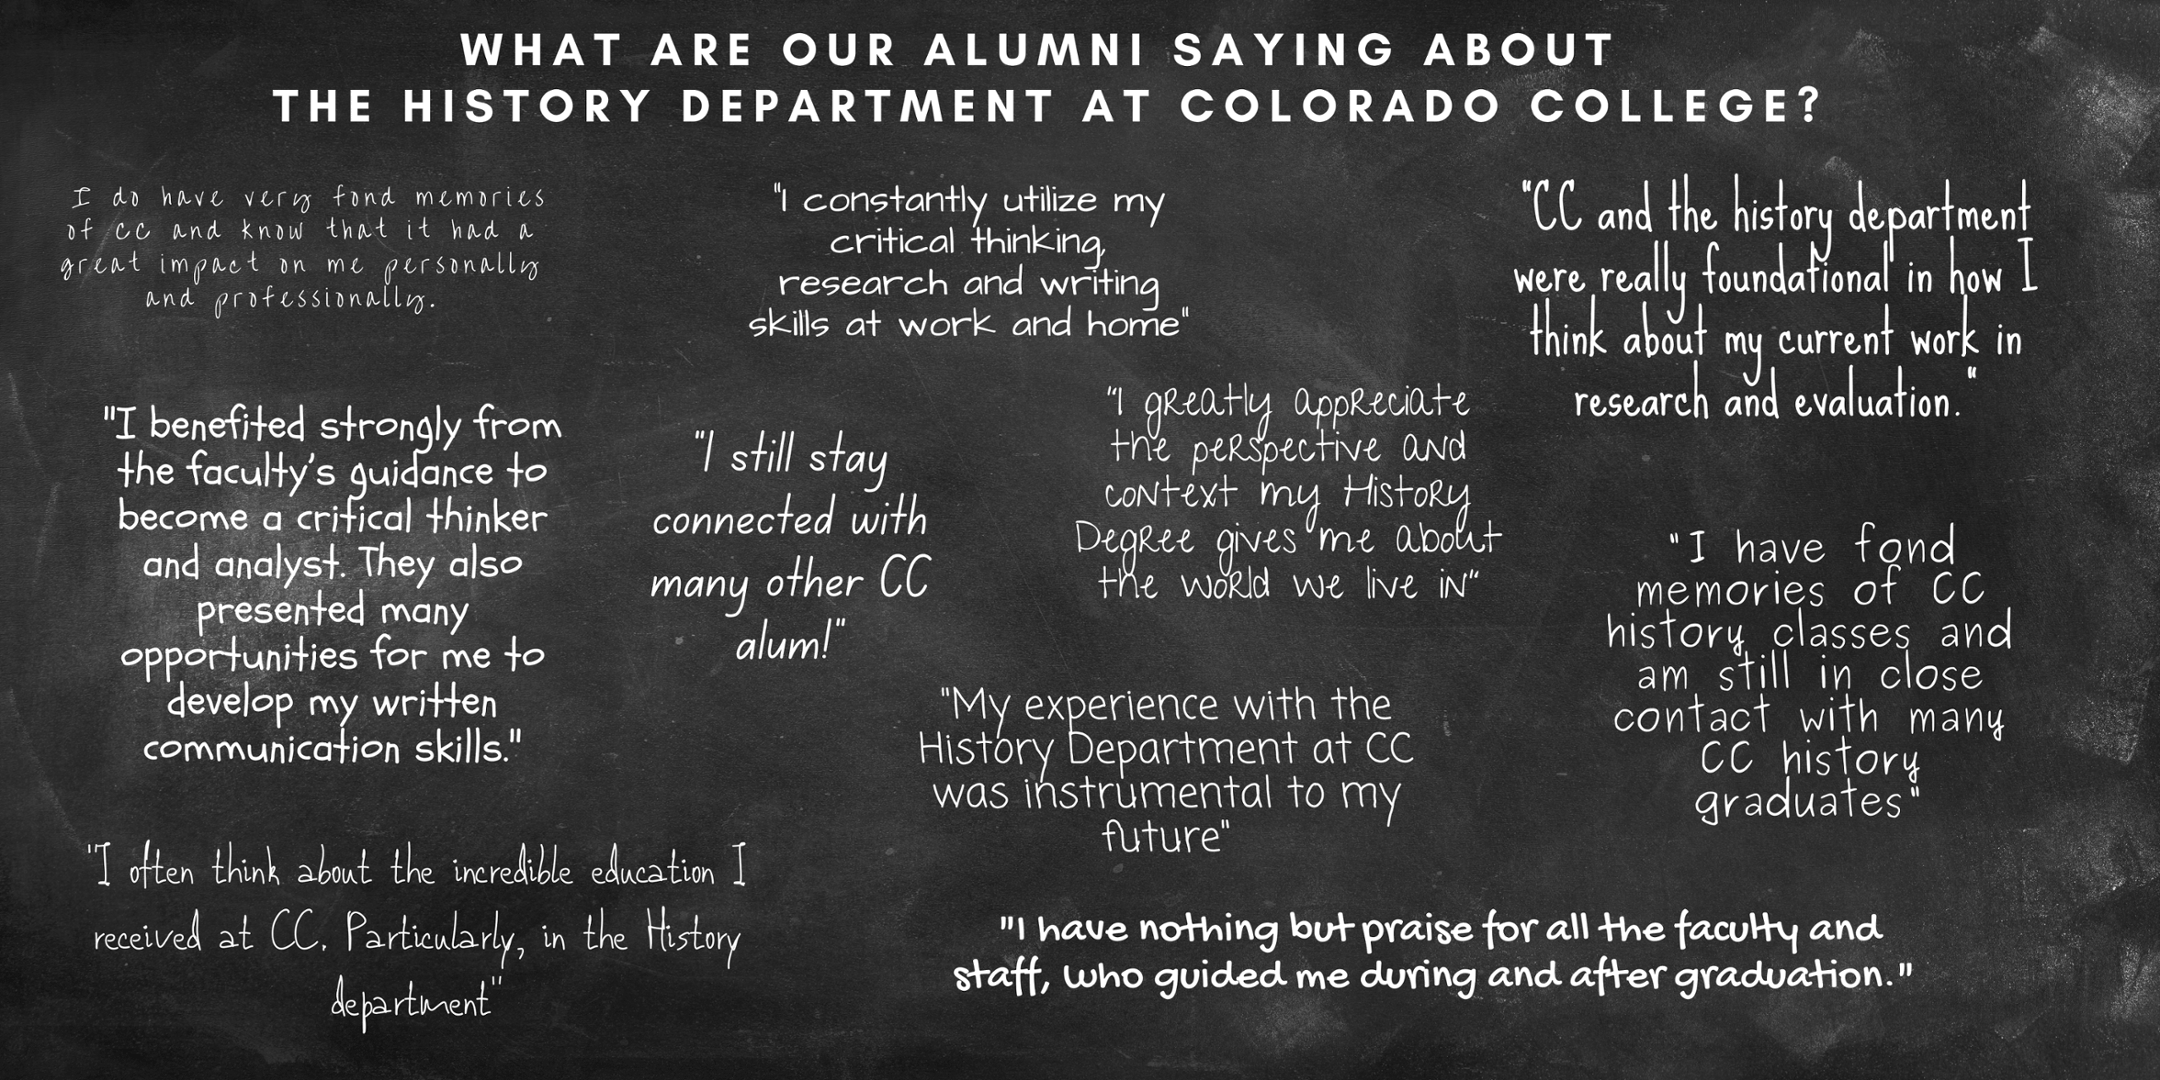 WHAT ARE OUR ALUMNI SAYING ABOUT
THE HISTORY DEPARTMENT AT COLORADO COLLEGE?
I do have very fond memories
of cc and know that it had a
great impact on me personally
and professionally.
"I constantly utilize my
critical thinking,
research and writing
skills at work and home"
"CC and the history department
were really foundational in how I
think about my current work in
research and evaluation."
"I benefited strongly from
the faculty's guidance to
become a critical thinker
and analyst. They also
presented many
opportunities for me to
develop my written
communication skills."
"I still stay
connected with
many other CC
alum!"
"I greatly appreciate
the perspective and
context my History
Degree gives me about
the world we live in"
"I have fond
memories of CC
history classes and
am still in close
contact with many
CC history
graduates"
"My experience with the
History Department at CC
was instrumental to my
future"
"I often think about the incredible education I
received at CC. Particularly, in the History
department"
"I have nothing but praise for all the faculty and
staff, who guided me during and after graduation."